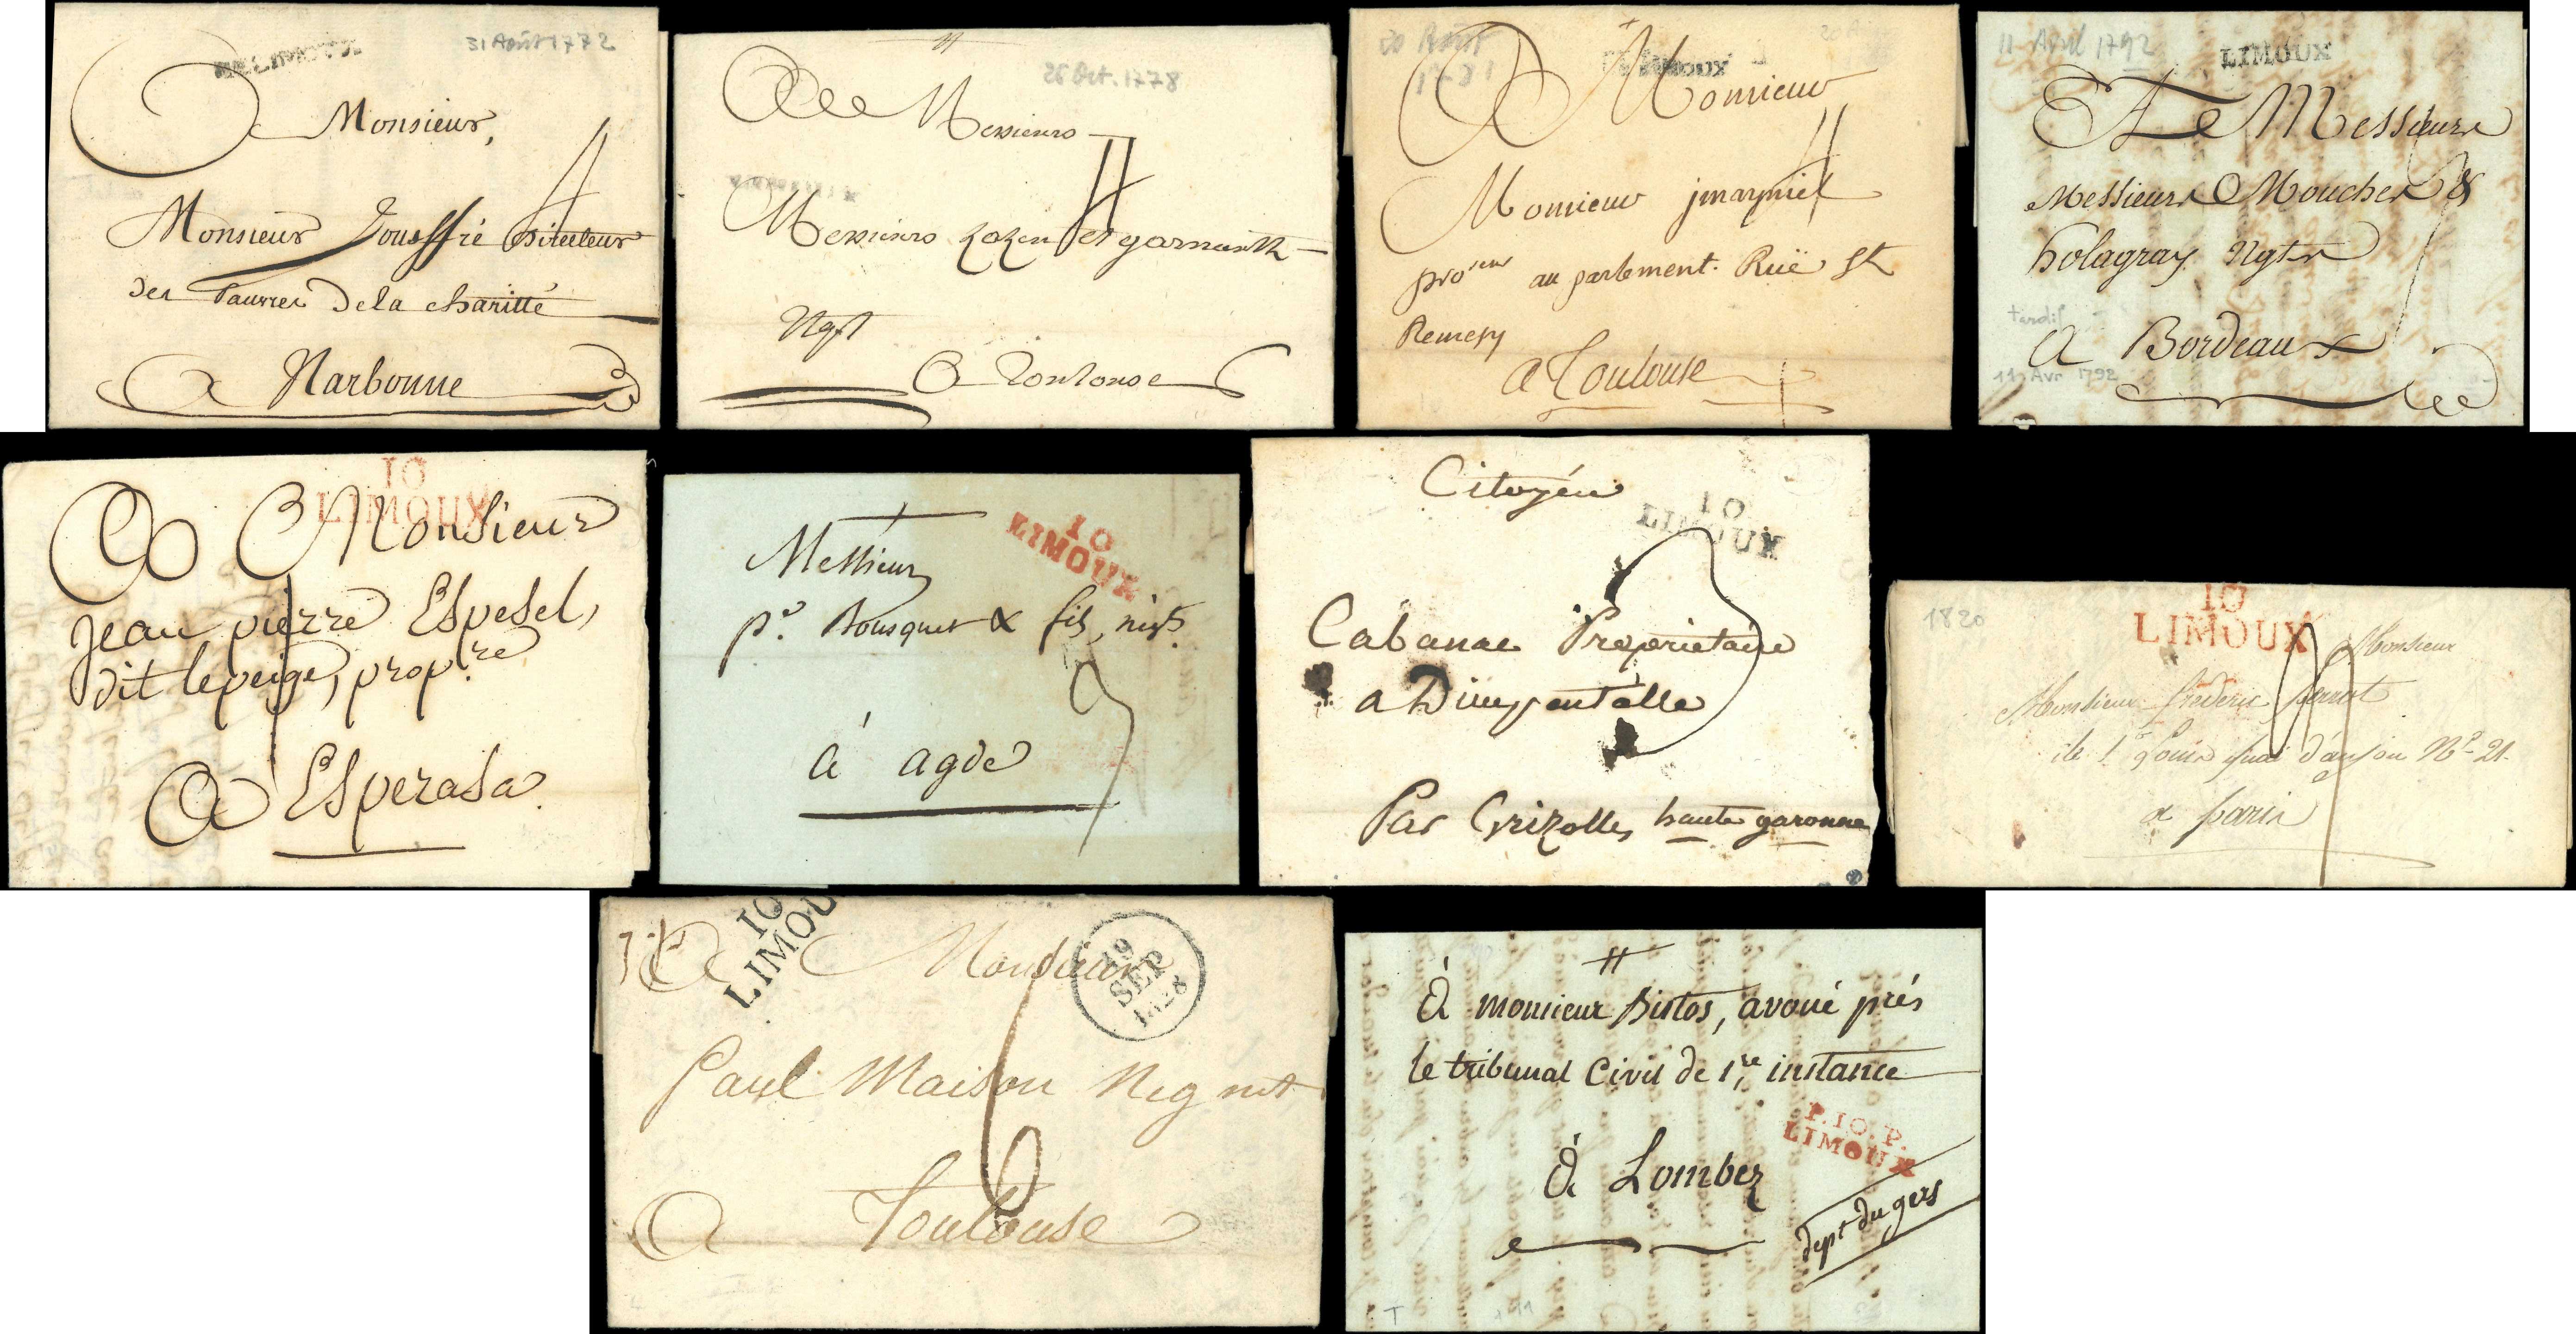 DE LIMOUX
31 Août 1772
Monsieur,
4
Monsieur Jouffré
des Pauvres de la charitté
A Narbonne
26 Oct. 1778
A Messieurs
4
Messieurs et
Ngt
A Toulouse
20 Août
LIMOUX
A Monsieur
4
Monsieur jmarquiel
pro.reur au parlement. Ruë St
Remesy
A Toulouse
11 Avril 1792
LIMOUX
A Messieurs
Messieurs Moucher &
holagray Ngts
tardif
A Bordeaux
11 Avr 1792
10
LIMOUX
A Monsieur
jean pierre Espesel,
dit lepeige, prop.re
A Esperasa.
10
LIMOUX
Messieurs
p.e Bousquet & fils, nigts.
à agde
Citoyén
10
LIMOUX
3
Cabanac Proprietaire
a Dieupentalle
Par Grizolles haute garonne
1820
10
LIMOUX
Monsieur
Monsieur frederic
ile St Louis quai d'anjou N.o 21.
a paris
10
LIMOU
19
SEP
1828
A Monsieur
6
Paul Maison Neg nt
A Toulouse
À monsieur Bistos, avoué prés
le tribunal Civil de 1.re instance
P.10.P.
LIMOUX
À Lombez
dep.t du gers